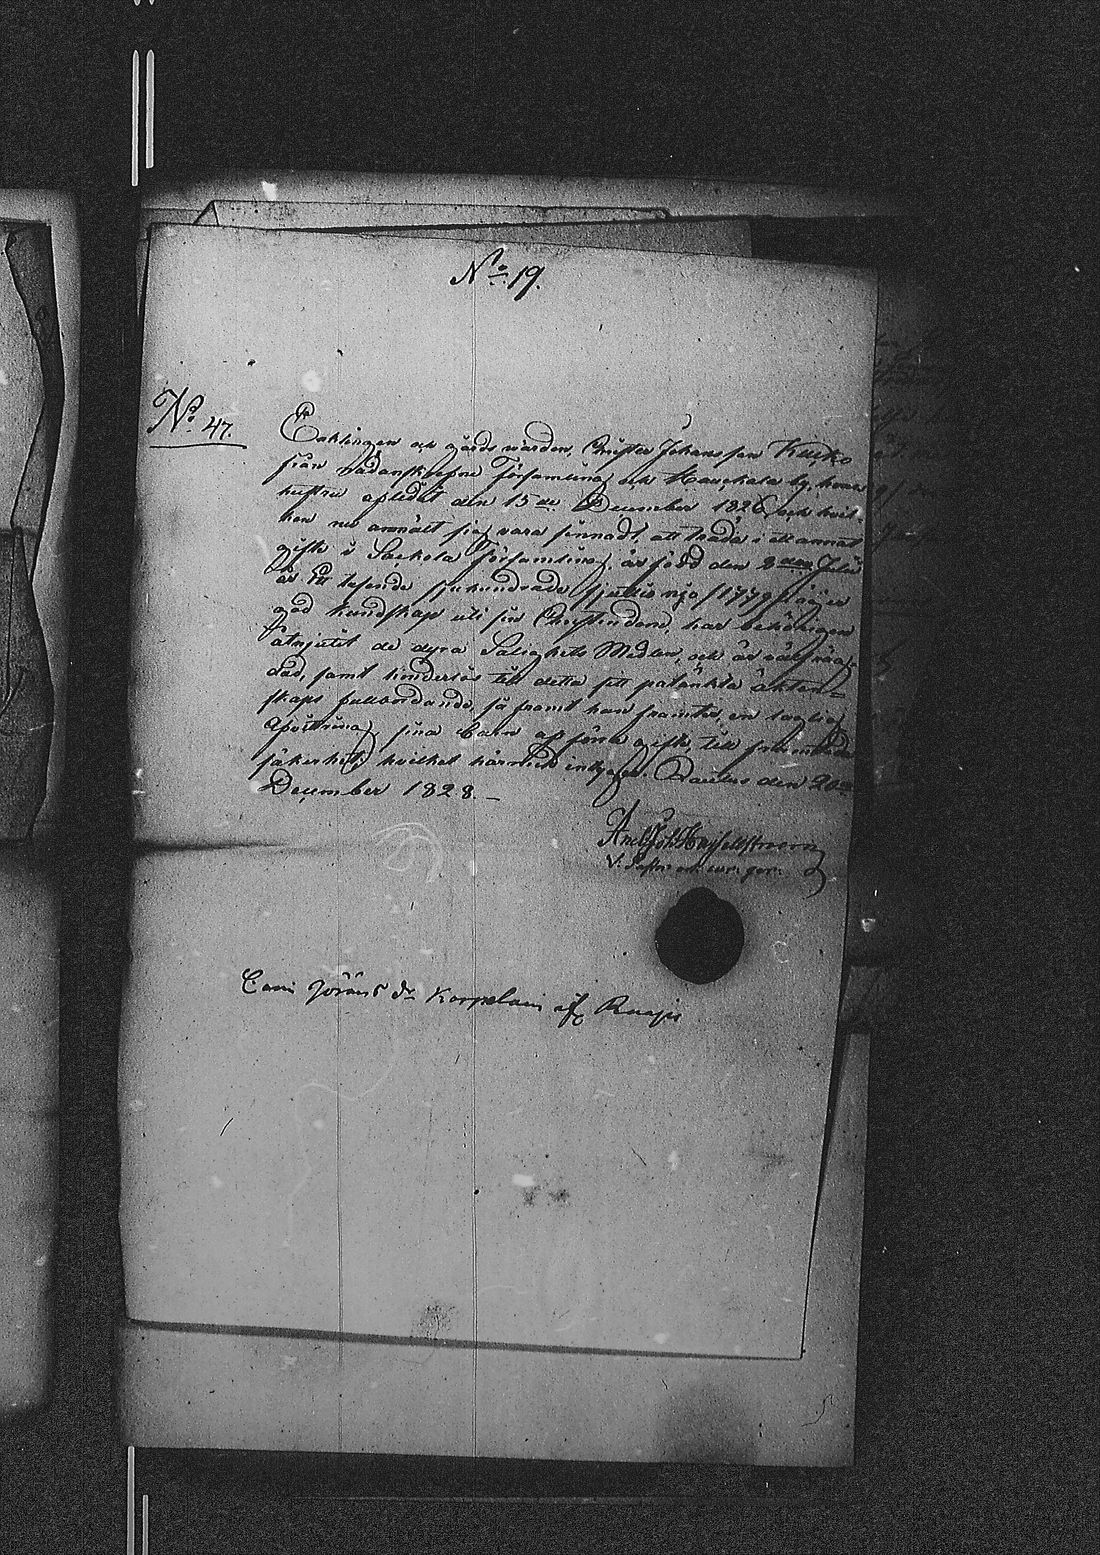 No 19.
No 47.
Enklingen och gårds värden, Christer Johansson Kucko
från Församling och by, hvars
hustru afledit den 15de December 1826, och hvil-
ken nu anmält sig vara sinnad, att träda i ett annat
gifte i Sackola Församling, är född den 2 Julii
år Ett tusende sjuhundrade sjutio njo /1779/ äger
god kundskap uti sin Christendom, har behörigen
åtnjutit de dyra Salighets Medlen, och är välfräg-
dad, samt hinderlös till detta sitt påtänkta äkten-
skaps fullbordande, så framt han framter, en laglig
afvittring sina barn af förra gifte, till
säkerhet; hvilket härmed intygas. Pautus den 20
December 1828.
V. Pastor
Jöräns dr Korpelain af